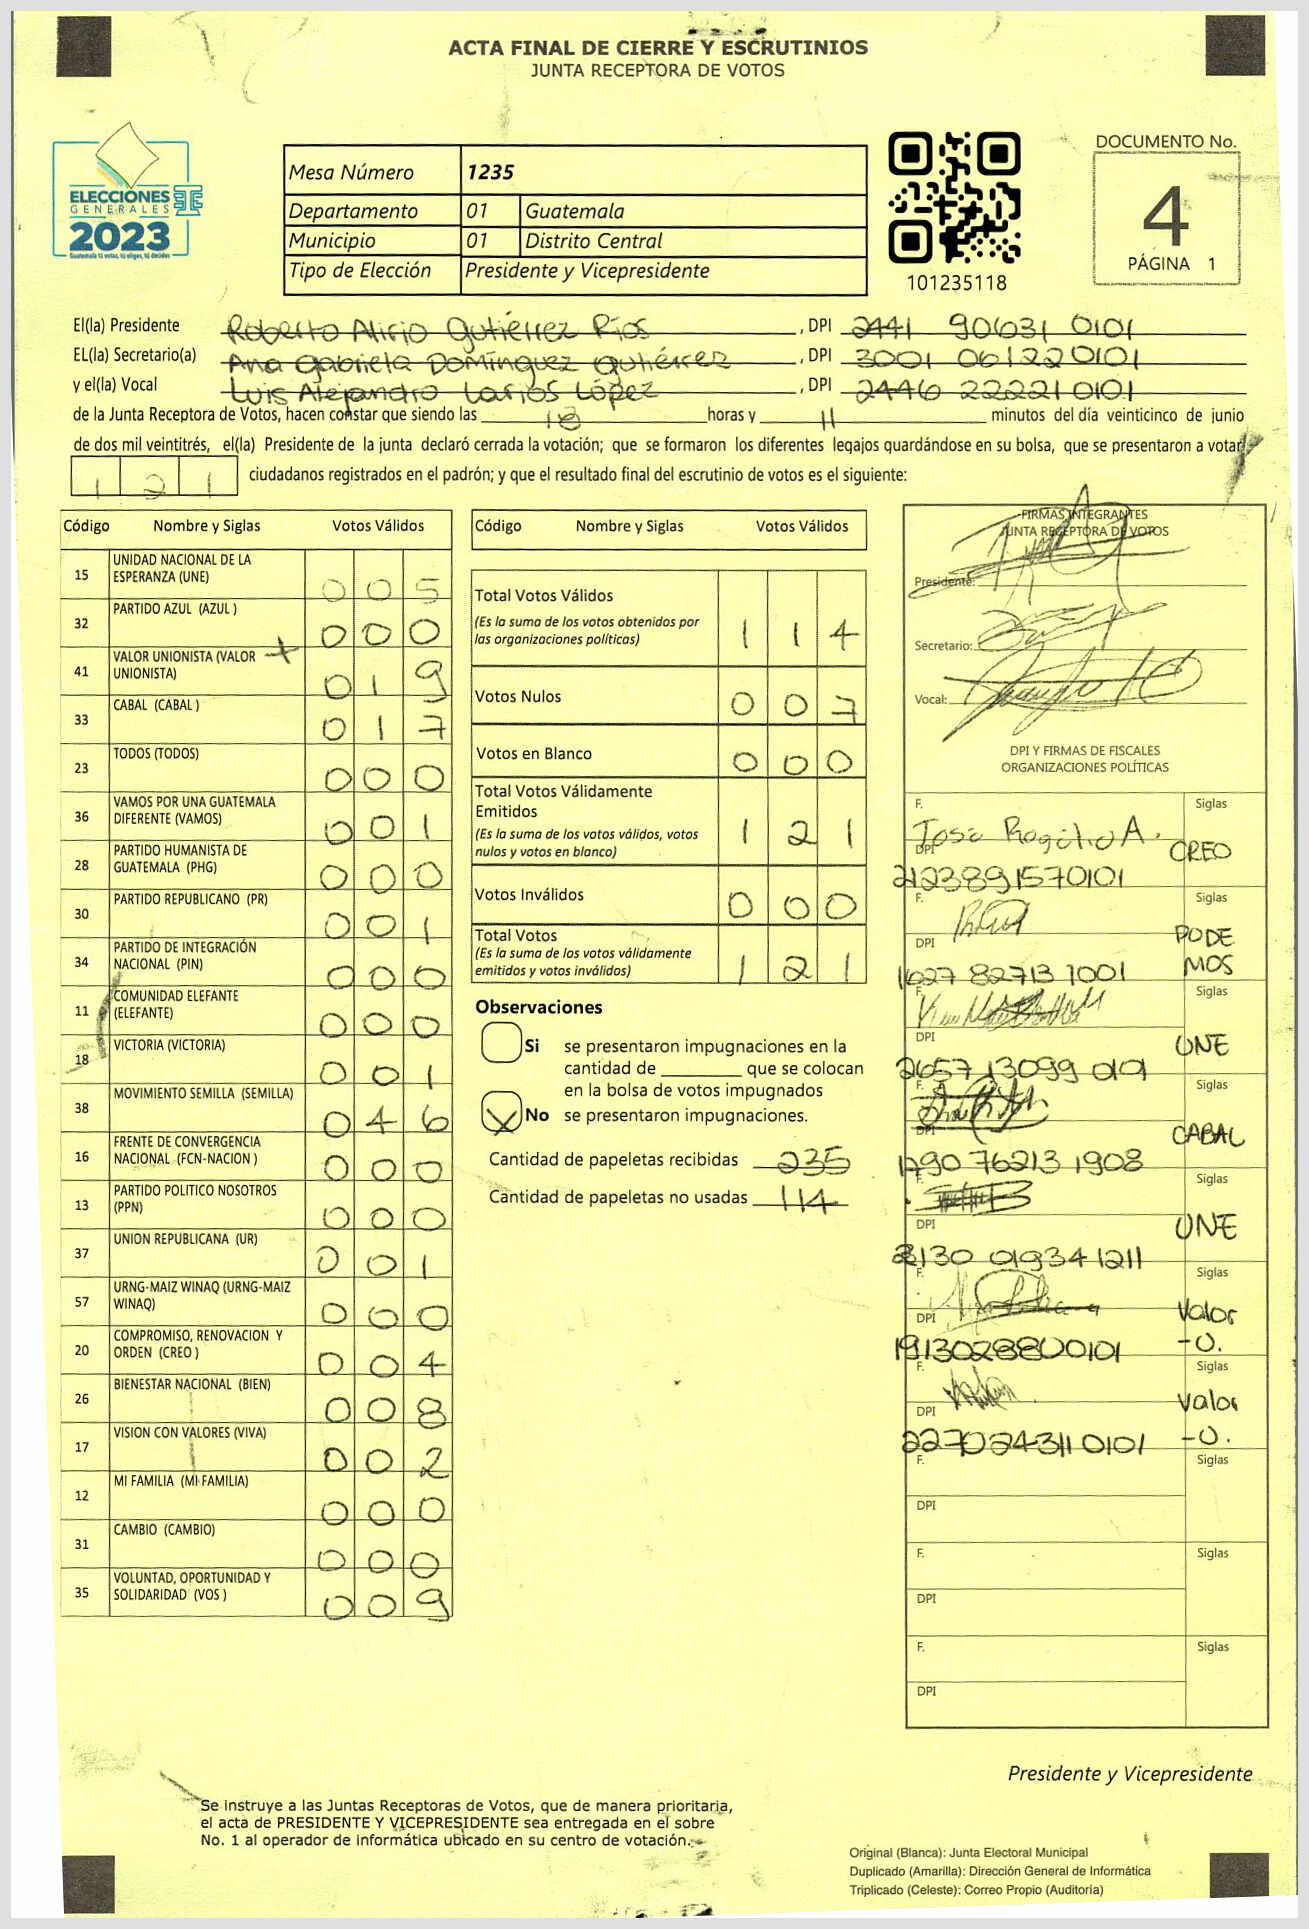 ACTA FINAL DE CIERRE Y ESCRUTINIOS
JUNTA RECEPTORA DE VOTOS
ELECCIONES
GENERALES
2023
Guatemala tú votas, tú eliges, tú decides
Mesa Número 1235
Departamento 01 Guatemala
Municipio 01 Distrito Central
Tipo de Elección Presidente y Vicepresidente
101235118
DOCUMENTO No.
4
PÁGINA 1
El(la) Presidente Roberto Alirio Gutiérrez Ríos , DPI 2441 90631 0101
EL(la) Secretario(a) Ana Gabriela Domínguez Gutiérrez , DPI 3001 06122 0101
y el(la) Vocal Luis Alejandro Larios López , DPI 2446 22221 0101
de la Junta Receptora de Votos, hacen constar que siendo las 18 horas y 11 minutos del día veinticinco de junio
de dos mil veintitrés, el(la) Presidente de la junta declaró cerrada la votación; que se formaron los diferentes legajos guardándose en su bolsa, que se presentaron a votar
121 ciudadanos registrados en el padrón; y que el resultado final del escrutinio de votos es el siguiente:
Código Nombre y Siglas Votos Válidos
15 UNIDAD NACIONAL DE LA ESPERANZA (UNE) 005
32 PARTIDO AZUL (AZUL ) 000
41 VALOR UNIONISTA (VALOR UNIONISTA) 019
33 CABAL (CABAL ) 017
23 TODOS (TODOS) 000
36 VAMOS POR UNA GUATEMALA DIFERENTE (VAMOS) 001
28 PARTIDO HUMANISTA DE GUATEMALA (PHG) 000
30 PARTIDO REPUBLICANO (PR) 001
34 PARTIDO DE INTEGRACIÓN NACIONAL (PIN) 000
11 COMUNIDAD ELEFANTE (ELEFANTE) 000
18 VICTORIA (VICTORIA) 001
38 MOVIMIENTO SEMILLA (SEMILLA) 046
16 FRENTE DE CONVERGENCIA NACIONAL (FCN-NACION ) 000
13 PARTIDO POLITICO NOSOTROS (PPN) 000
37 UNION REPUBLICANA (UR) 001
57 URNG-MAIZ WINAQ (URNG-MAIZ WINAQ) 000
20 COMPROMISO, RENOVACION Y ORDEN (CREO ) 004
26 BIENESTAR NACIONAL (BIEN) 008
17 VISION CON VALORES (VIVA) 002
12 MI FAMILIA (MI FAMILIA) 000
31 CAMBIO (CAMBIO) 000
35 VOLUNTAD, OPORTUNIDAD Y SOLIDARIDAD (VOS ) 009
Código Nombre y Siglas Votos Válidos
Total Votos Válidos 114
(Es la suma de los votos obtenidos por
las organizaciones políticas)
Votos Nulos 007
Votos en Blanco 000
Total Votos Válidamente
Emitidos 121
(Es la suma de los votos válidos, votos
nulos y votos en blanco)
Votos Inválidos 000
Total Votos 121
(Es la suma de los votos válidamente
emitidos y votos inválidos)
Observaciones
Si se presentaron impugnaciones en la
cantidad de ________ que se colocan
en la bolsa de votos impugnados
X No se presentaron impugnaciones.
Cantidad de papeletas recibidas 235
Cantidad de papeletas no usadas 114
FIRMAS INTEGRANTES
JUNTA RECEPTORA DE VOTOS
Presidente:
Secretario:
Vocal:
DPI Y FIRMAS DE FISCALES
ORGANIZACIONES POLÍTICAS
F. José Rogelio A. Siglas CREO
DPI 2123891570101
F. Siglas PODEMOS
DPI 1627 82713 1001
F. Siglas UNE
DPI 2657 13099 0101
F. Siglas CABAL
DPI 1790 76213 1908
F. Siglas UNE
DPI 3130 01934 1211
F. Siglas Valor -U.
DPI 1913028800101
F. Siglas Valor -U.
DPI 2270243110101
F. Siglas
DPI
F. Siglas
DPI
F. Siglas
DPI
Presidente y Vicepresidente
Se instruye a las Juntas Receptoras de Votos, que de manera prioritaria,
el acta de PRESIDENTE Y VICEPRESIDENTE sea entregada en el sobre
No. 1 al operador de informática ubicado en su centro de votación.
Original (Blanca): Junta Electoral Municipal
Duplicado (Amarilla): Dirección General de Informática
Triplicado (Celeste): Correo Propio (Auditoría)